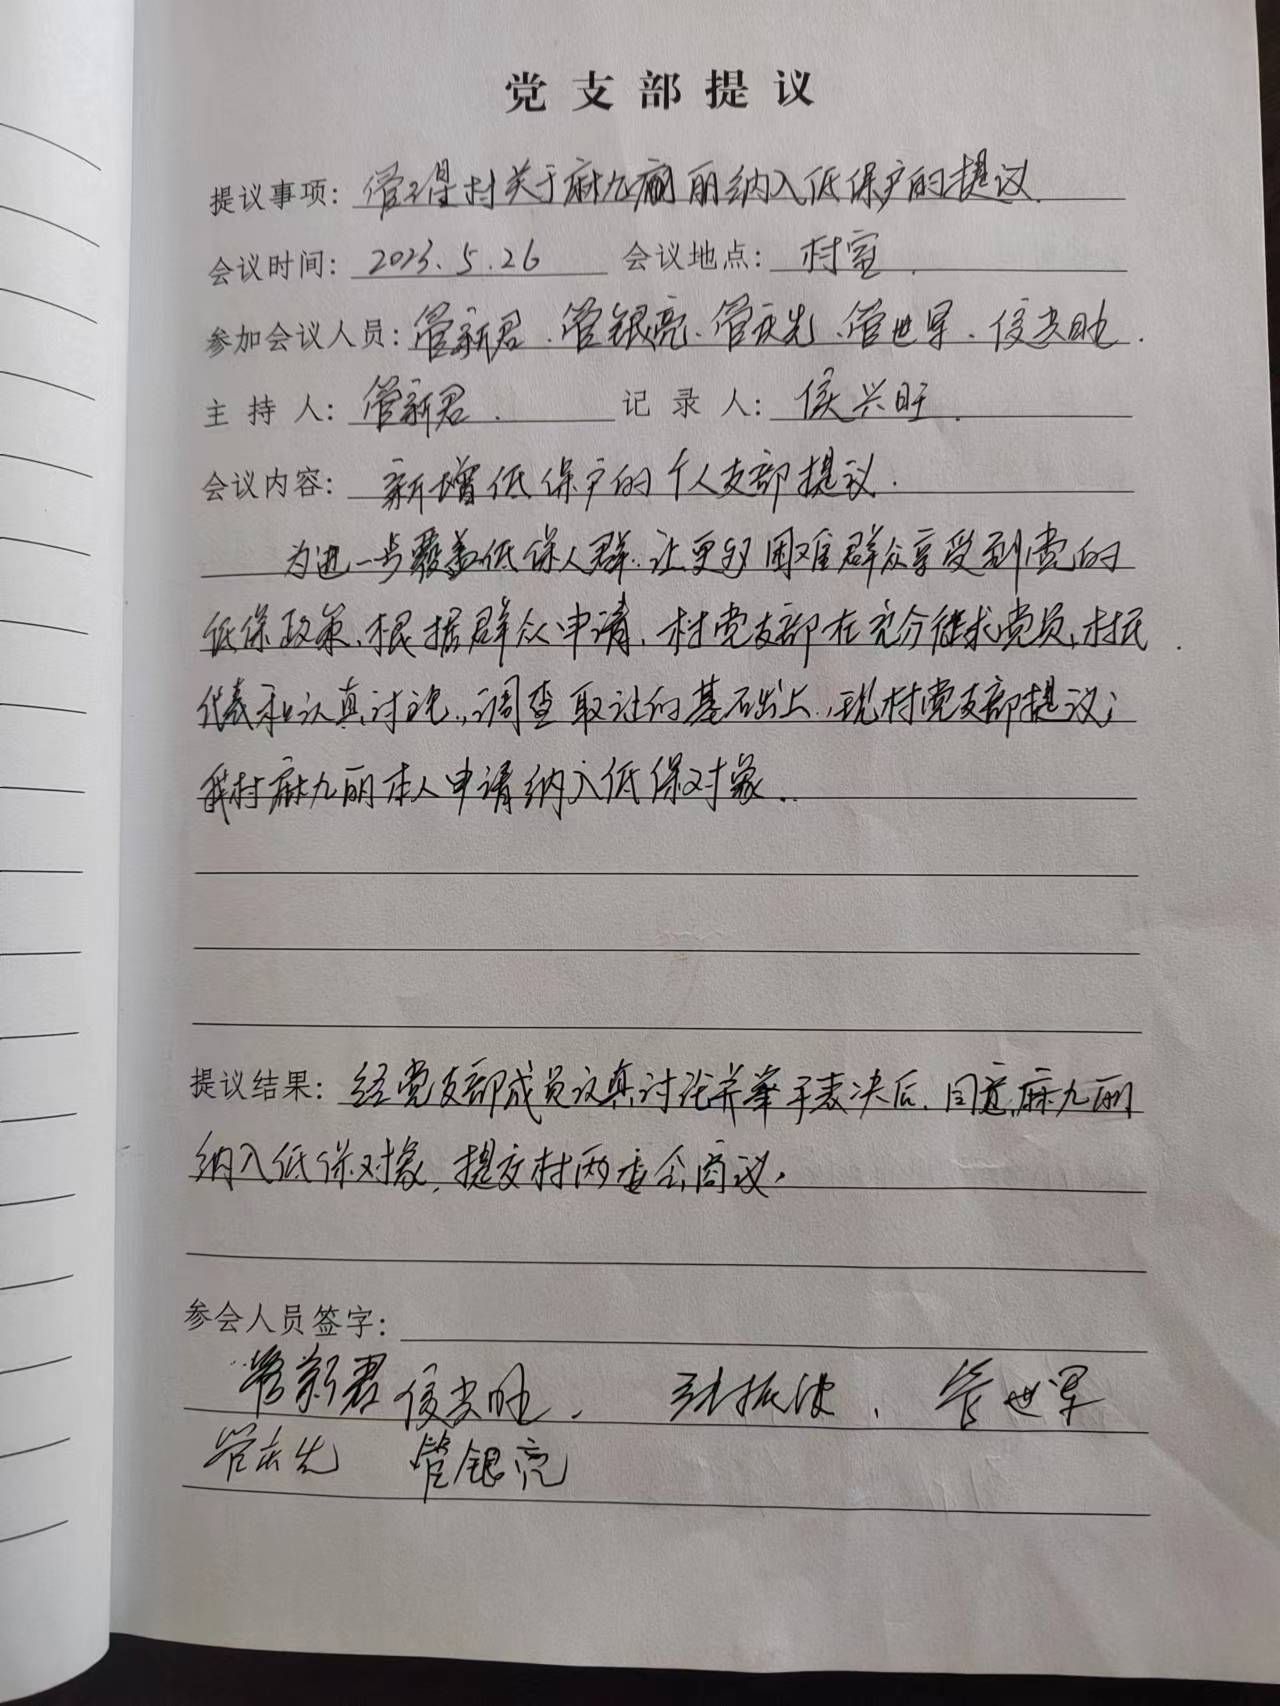 党支部提议
提议事项：管王得村关于麻九丽纳入低保户的提议.
会议时间：2023.5.26 会议地点：村室.
参加会议人员：管新君、管银亮、管庆先、管世军、侯兴旺.
主持人：管新君. 记录人：侯兴旺.
会议内容：新增低保户的个人支部提议.
为进一步覆盖低保人群，让更多困难群众享受到党的
低保政策、根据群众申请，村党支部在充分征求党员、村民
代表和认真讨论，调查取证的基础上，现村党支部提议；
我村麻九丽本人申请纳入低保对象.
提议结果：经党支部成员认真讨论并举手表决后，同意麻九丽
纳入低保对象，提交村两委会商议。
参会人员签字：
管新君 侯兴旺、 张振波、 管世军
管庆先 管银亮